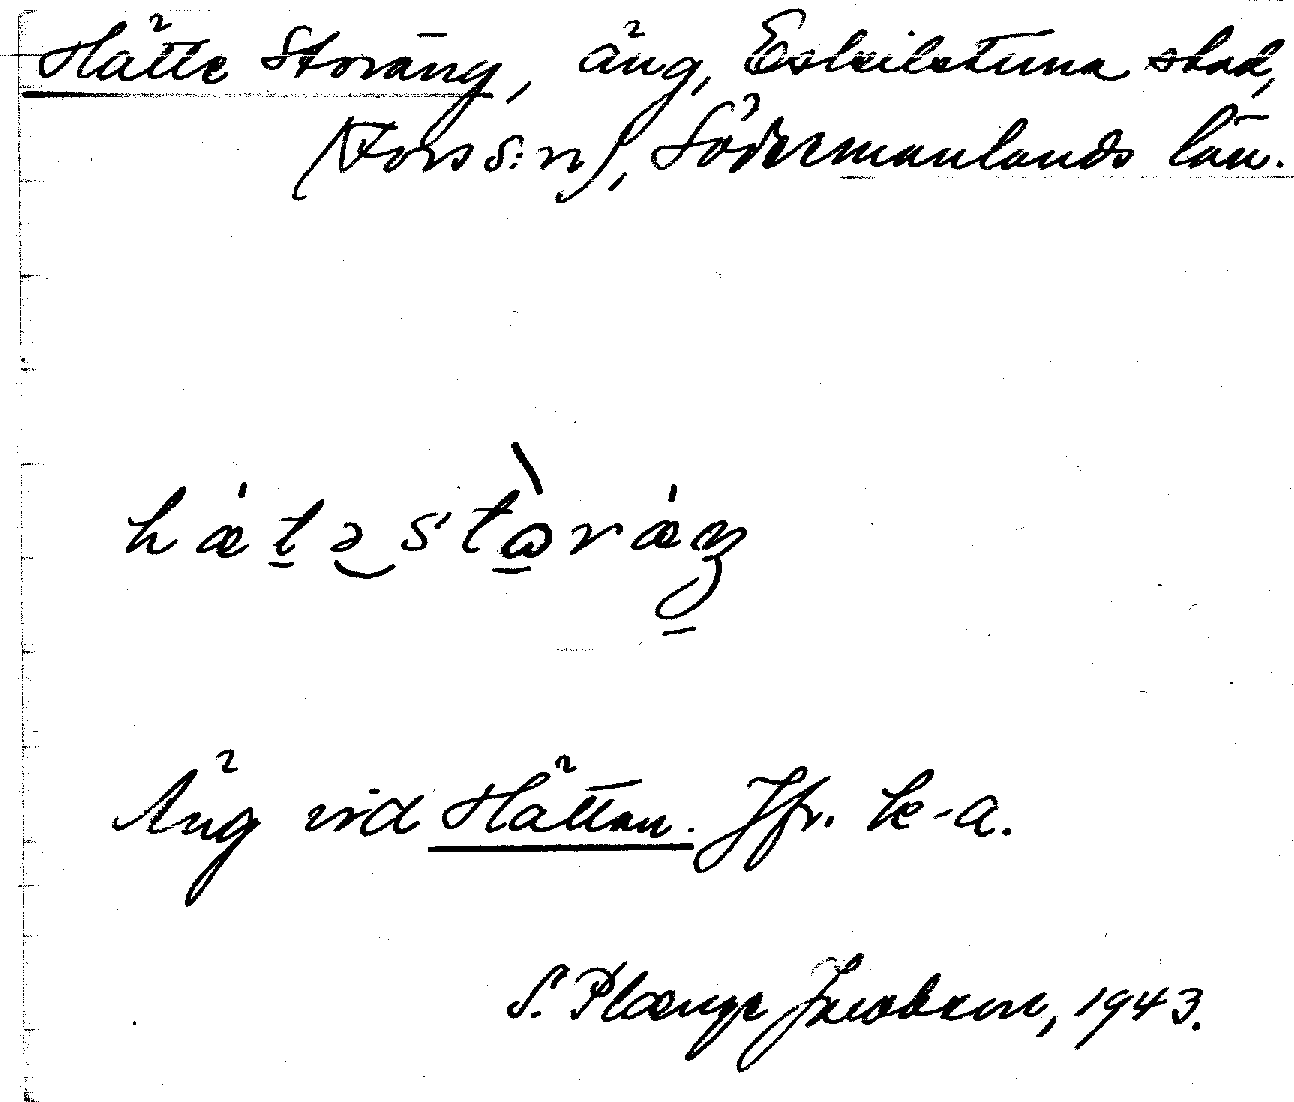 Hätte Storäng, äng, Eskilstuna stad,
(Fors s:n), Södermanlands län.
Äng vid Hättan. Jfr. k-a.
S. Plænge Jacobson, 1943.